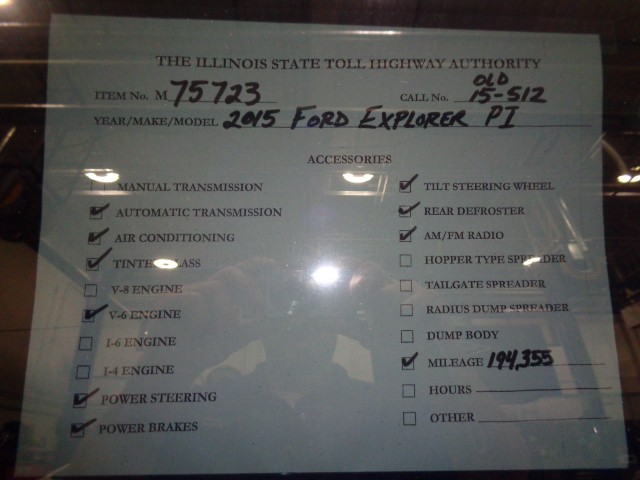 THE ILLINOIS STATE TOLL HIGHWAY AUTHORITY
ITEM No. M 75723
CALL No. OLD 15-512
YEAR/MAKE/MODEL 2015 FORD EXPLORER PI
ACCESSORIES
MANUAL TRANSMISSION
AUTOMATIC TRANSMISSION
AIR CONDITIONING
TINTED GLASS
V-8 ENGINE
V-6 ENGINE
I-6 ENGINE
I-4 ENGINE
POWER STEERING
POWER BRAKES
TILT STEERING WHEEL
REAR DEFROSTER
AM/FM RADIO
HOPPER TYPE SPREADER
TAILGATE SPREADER
RADIUS DUMP SPREADER
DUMP BODY
MILEAGE 194,355
HOURS
OTHER